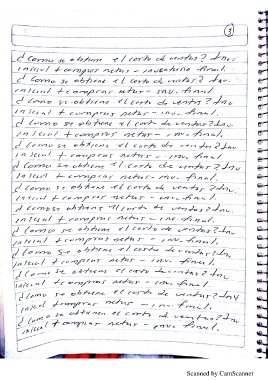 3
¿Como se obtiene el costo de ventas? Inv.
inicial + compras netas - inventario final.
¿Como se obtiene el costo de ventas? Inv.
inicial + compras netas - inv. final.
¿Como se obtiene el costo de ventas? Inv
inicial + compras netas - inv. final.
¿Como se obtiene el costo de ventas? Inv
inicial + compras netas - inv. final.
¿Como se obtiene el costo de ventas? Inv
inicial + compras netas - inv. final
¿Como se obtiene el costo de ventas? Inv
inicial + compras netas - inv. final
¿Como se obtiene el costo de ventas? Inv
inicial + compras netas - inv. final.
¿Como se obtiene el costo de ventas? Inv
inicial + compras netas - inv. final.
¿Como se obtiene el costo de ventas? Inv
inicial + compras netas - inv. final.
¿Como se obtiene el costo de ventas? Inv
inicial + compras netas - inv. final.
¿Como se obtiene el costo de ventas? Inv
inicial + compras netas - inv. final.
¿Como se obtiene el costo de ventas? Inv
inicial + compras netas - inv. final.
¿Como se obtiene el costo de ventas? Inv
inicial + compras netas - inv. final.
Scanned by CamScanner